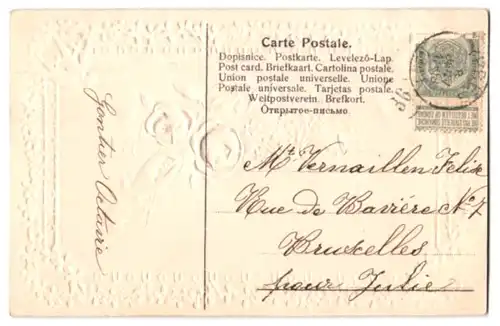 Carte Postale.
Dopisnice. Postkarte. Levelező-Lap.
Post card. Briefkaart. Cartolina postale.
Union postale universelle. Unione
Postale universale. Tarjetas postale.
Weltpostverein. Brefkort.
Открытое-письмо
Gontier Octavie
Mr Vernaillen Felix
Rue de Bavière No 7
Bruxelles
pour Julie